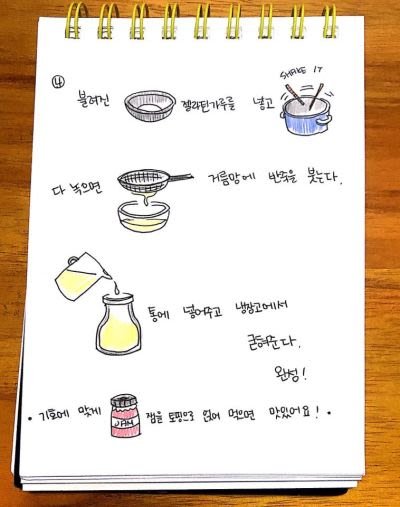 SHAKE IT
④ 불려진 젤라틴가루를 넣고
다 녹으면 거름망에 반죽을 붓는다.
통에 넣어주고 냉장고에서
굳혀준다.
완성!
• 기호에 맞게 JAM 잼을 토핑으로 얹어 먹으면 맛있어요! •